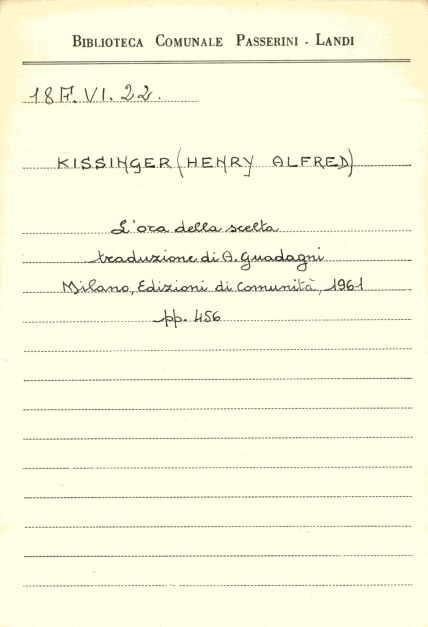 BIBLIOTECA COMUNALE PASSERINI - LANDI
18F.VI.22.
KISSINGER (HENRY ALFRED)
L'ora della scelta
traduzione di A. Guadagni
Milano, Edizioni di Comunità, 1961
pp. 456